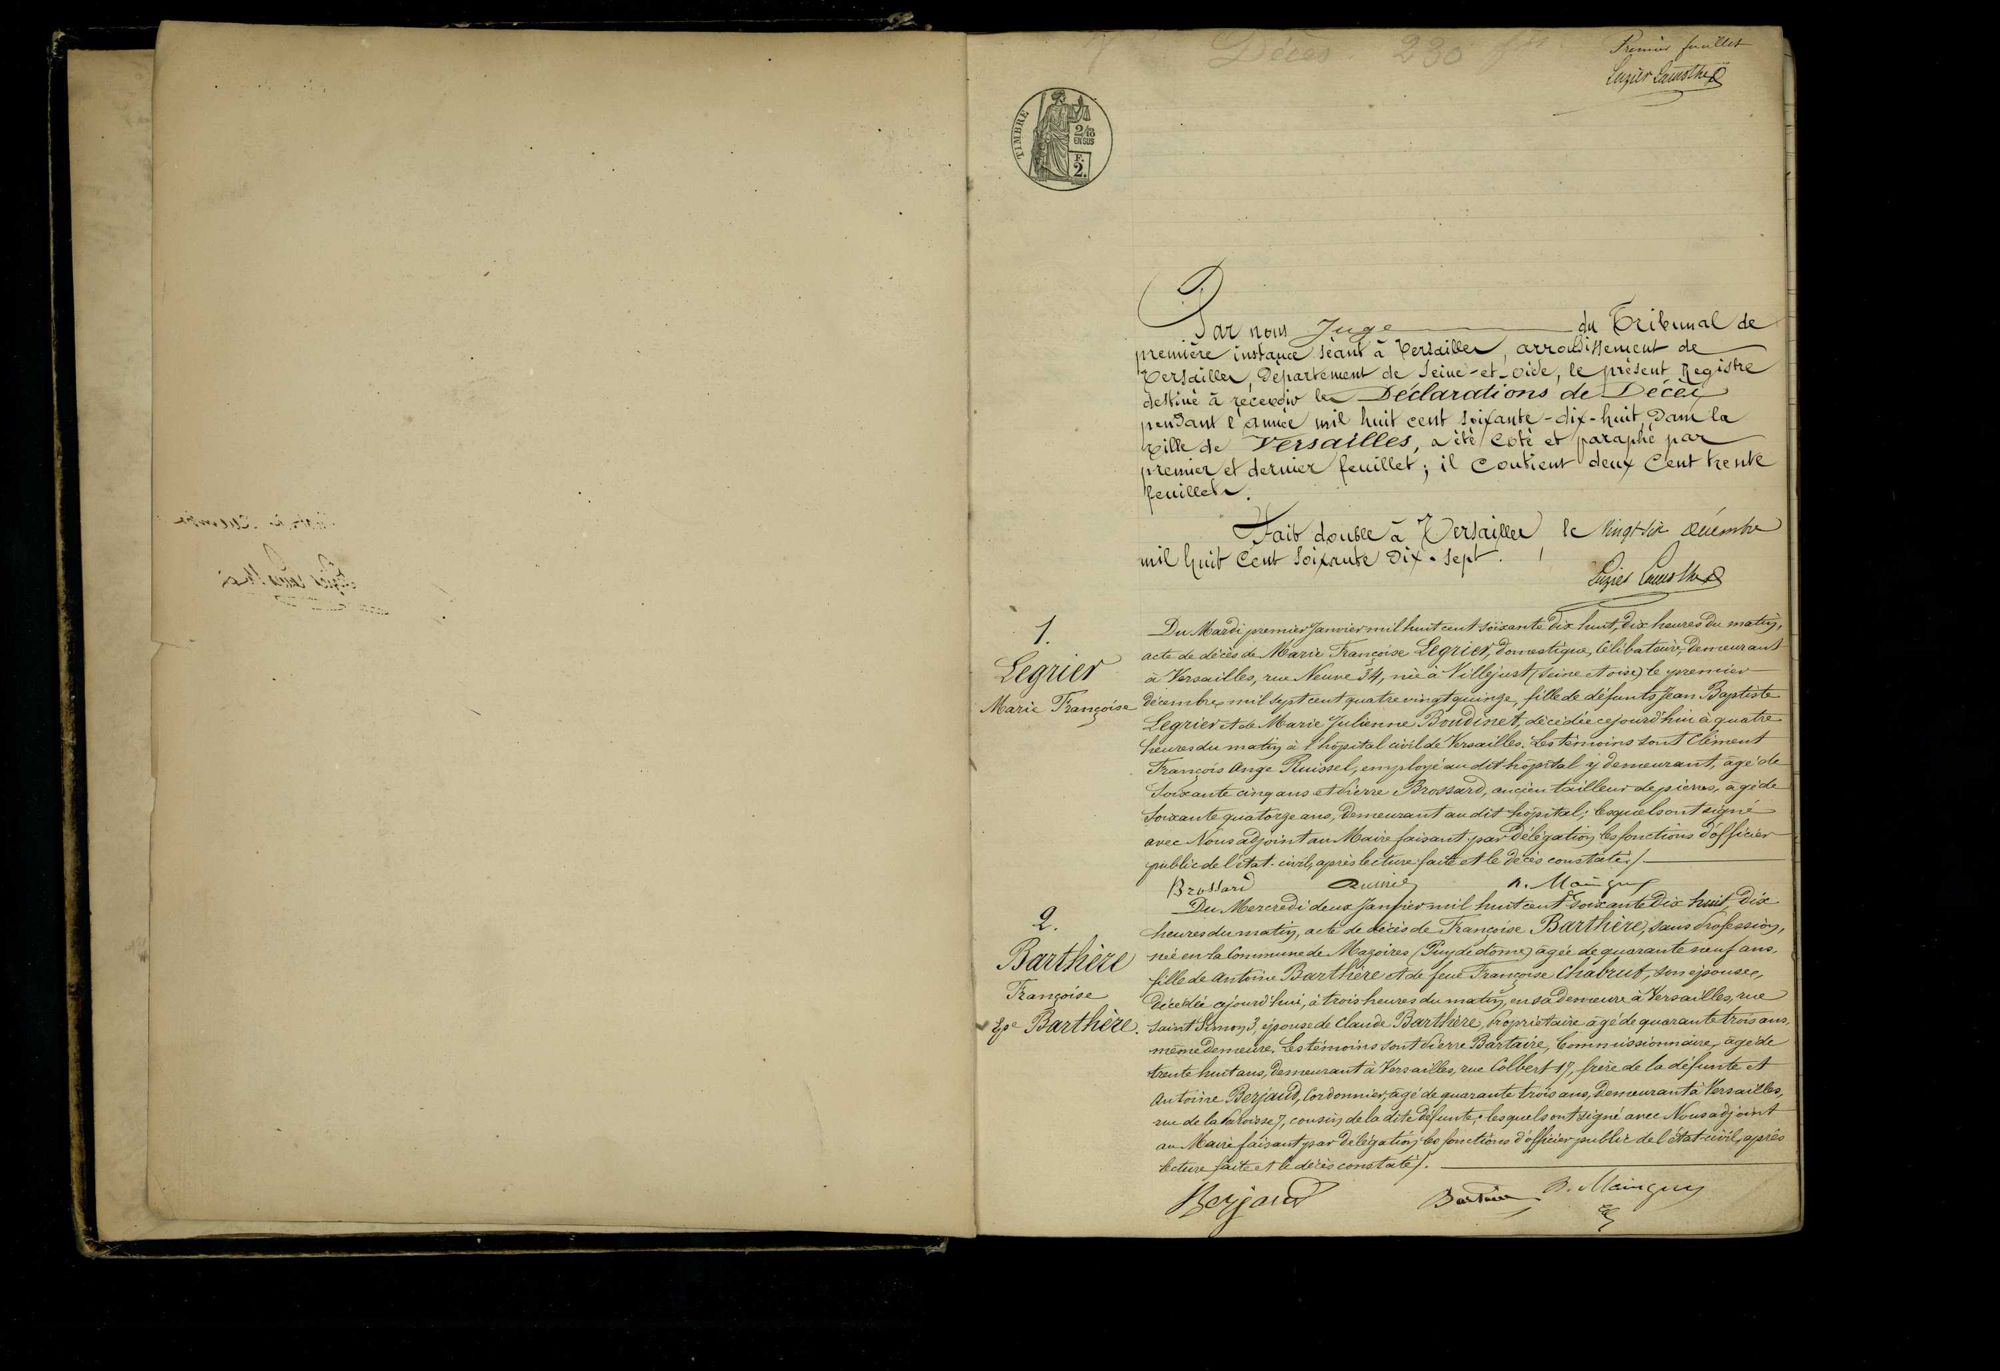 Décès 230 fts
Premier feuillet
TIMBRE
2/10
EN SUS
F.
2.
Par nous Juge du Tribunal de
première instance séant à Versailles, arrondissement de
Versailles, Département de Seine-et-Oise, le présent Registre
destiné à recevoir les Déclarations de Décès
pendant l'année mil huit cent soixante-dix-huit, dans la
Ville de Versailles, a été coté et paraphé par
premier et dernier feuillet; il contient deux cent trente
feuillets.
Fait double à Versailles le vingt six décembre
mil huit cent soixante dix-sept.
1.
Legrier
Marie Françoise
Du Mardi premier Janvier mil huit cent soixante dix huit, dix heures du matin,
acte de décès de Marie Françoise Legrier, Domestique, Célibataire, demeurant
à Versailles, rue Neuve 34, née à Villejust (Seine et oise) le premier
décembre mil sept cent quatre vingt quinze, fille de défunts Jean Baptiste
Legrier et de Marie Julienne Boudinet, décédée cejourd'hui à quatre
heures du matin à l'hôpital civil de Versailles. Les témoins sont Clément
François Ange Ruissel, employé au dit hôpital y demeurant, âgé de
soixante cinq ans et Pierre Brossard, ancien tailleur de pierres, âgé de
soixante quatorze ans, demeurant au dit hôpital; lesquels ont signé
avec Nous adjoint au Maire faisant par délégation les fonctions d'officier
public de l'état-civil, après lecture faite et le décès constaté./.
Brossard
A. Mainguy
2.
Barthère
Françoise
Epe Barthère.
Du Mercredi deux Janvier mil huit cent soixante dix huit, dix
heures du matin, acte de décès de Françoise Barthère, sans Profession,
née en la Commune de Mazoires (Puy de dôme) âgée de quarante neuf ans,
fille de Antoine Barthère et de feue Françoise Chabrut, son épouse,
décédée cejourd'hui, à trois heures du matin, en sa demeure à Versailles, rue
Saint Simon 3, épouse de Claude Barthère, Propriétaire âgé de quarante trois ans,
même demeure. Les témoins sont Pierre Bartaire, Commissionnaire, âgé de
trente huit ans, demeurant à Versailles, rue Colbert 17, frère de la défunte et
Antoine Berjaud, Cordonnier, âgé de quarante trois ans, demeurant à Versailles,
rue de la Paroisse 7, cousin de la dite défunte; lesquels ont signé avec Nous adjoint
au Maire faisant par délégation les fonctions d'officier public de l'état-civil, après
lecture faite et le décès constaté./.
Berjaud
Bartaire
A. Mainguy